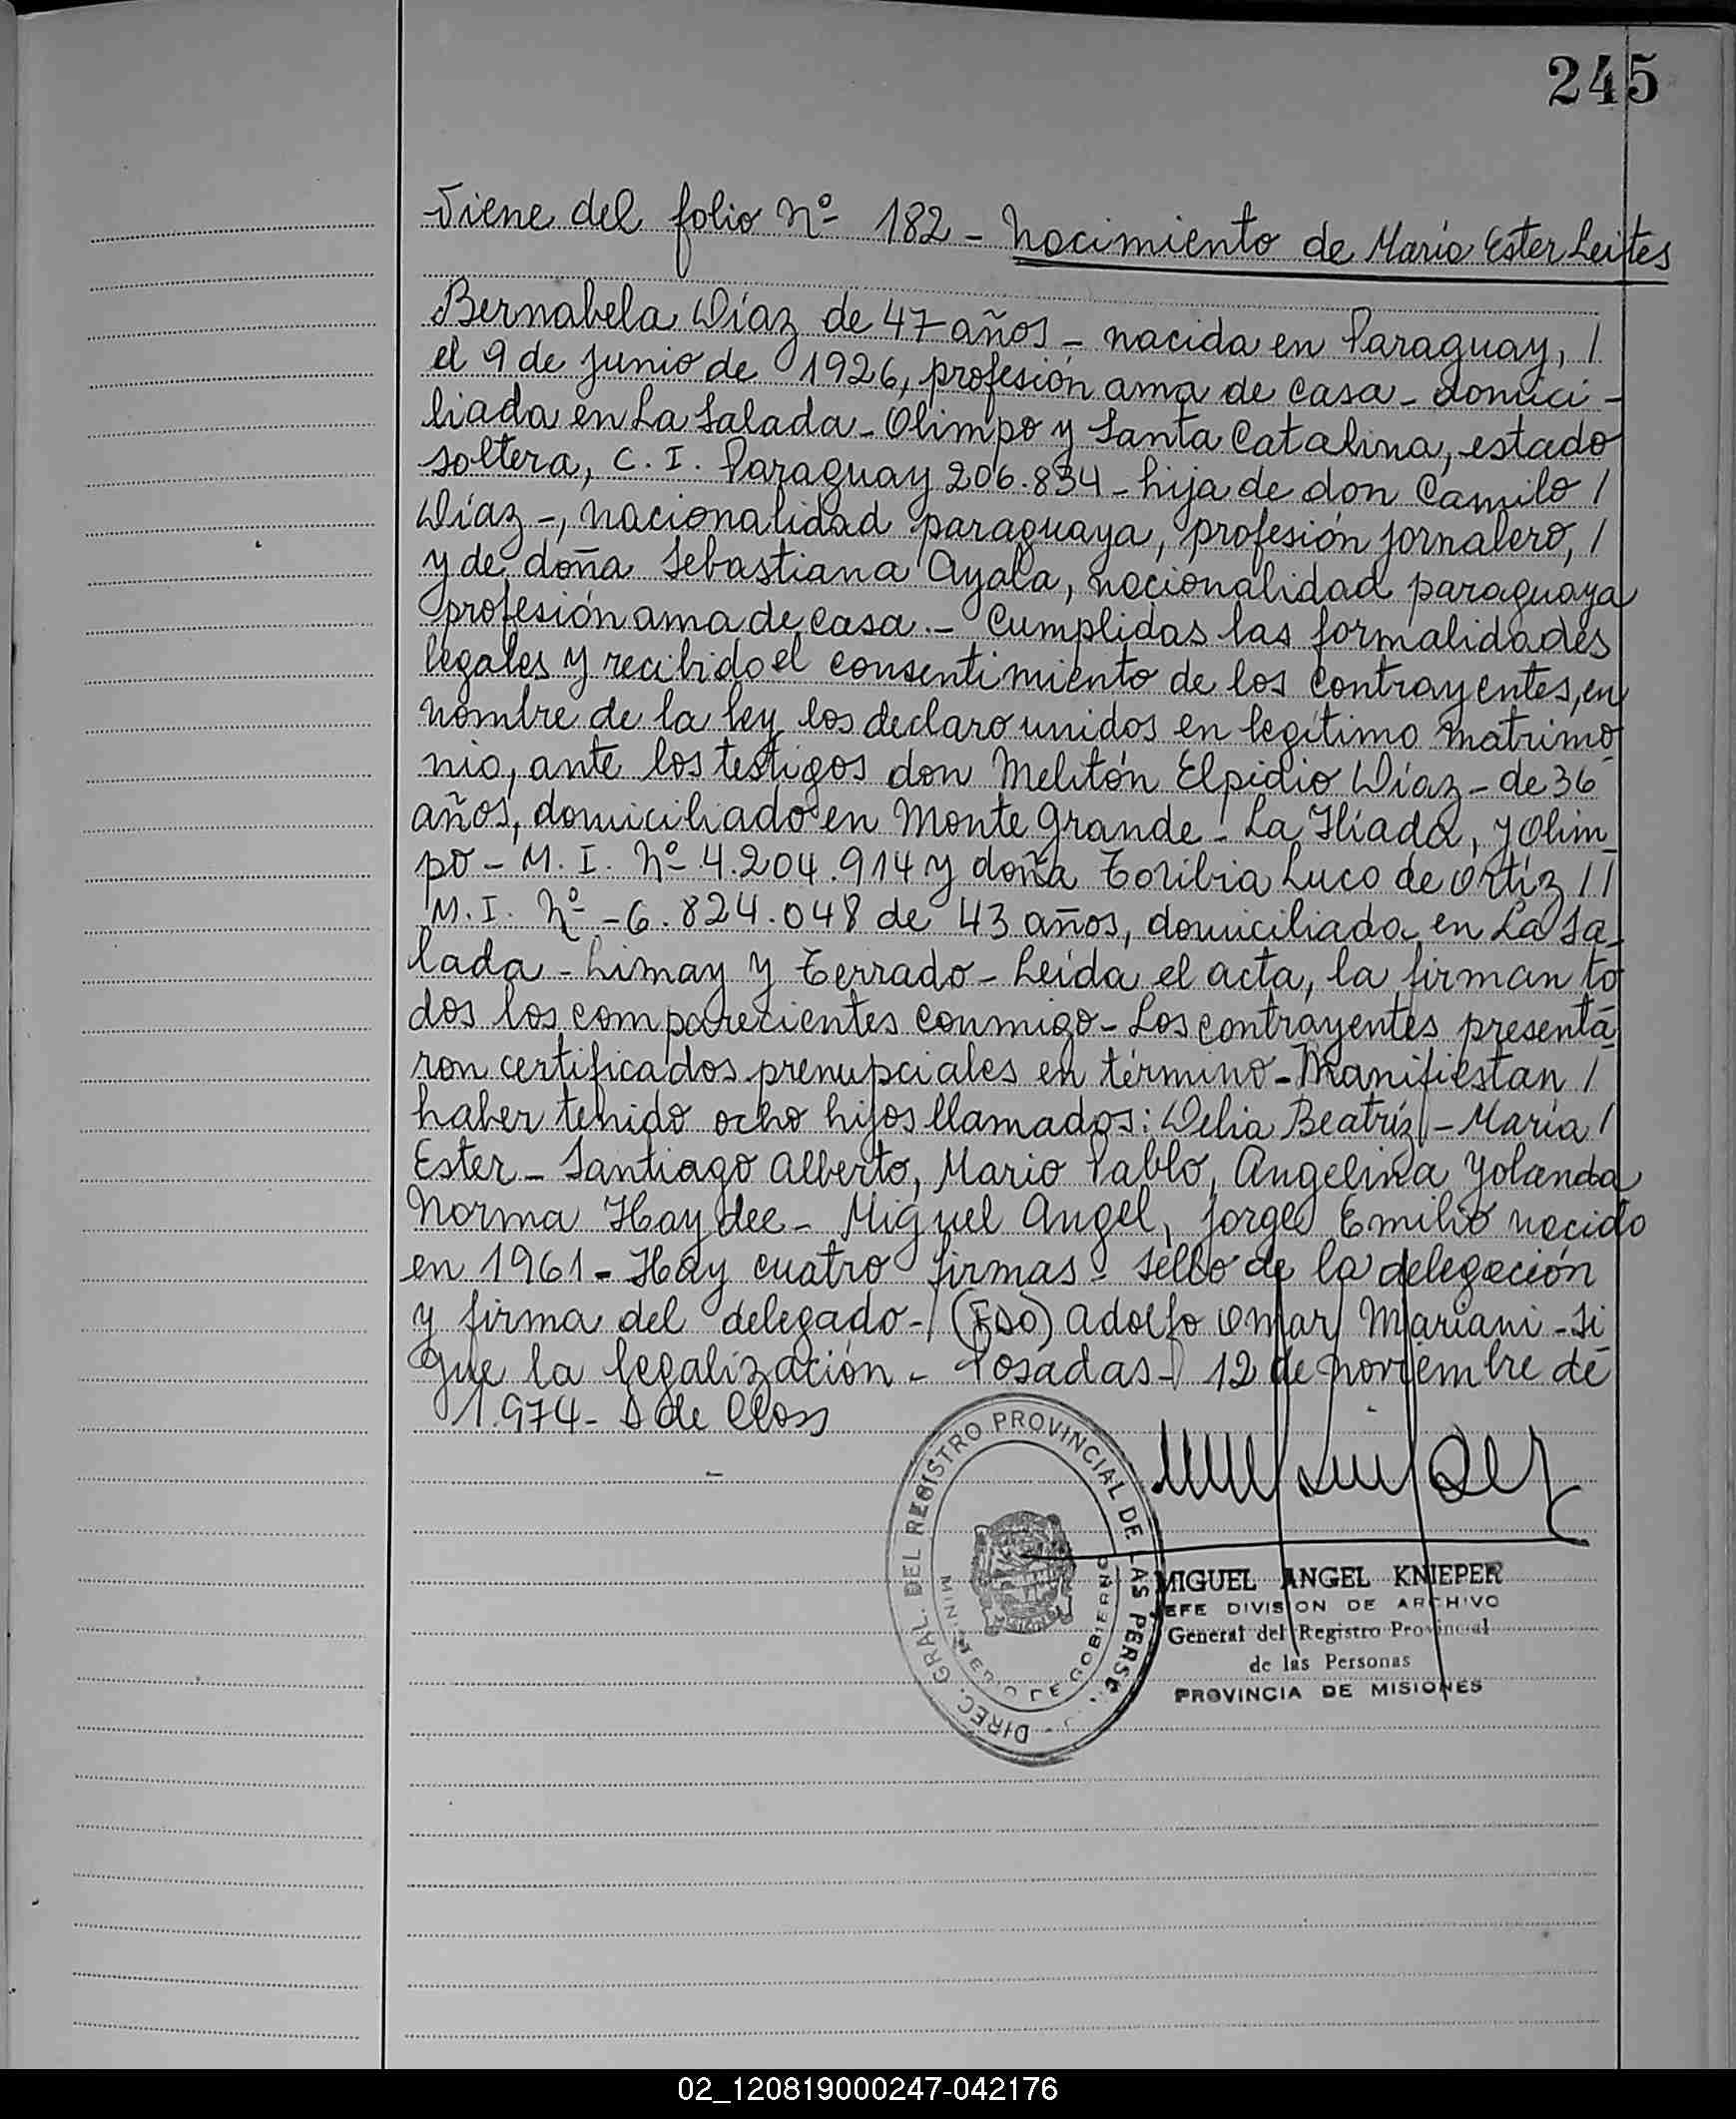 245
Viene del folio Nº 182 - Nacimiento de María Ester Leites
Bernabela Díaz de 47 años - nacida en Paraguay, /
el 9 de junio de 1926, profesión ama de casa - domici-
liada en La Salada - Olimpo y Santa Catalina, estado
soltera, C. I. Paraguay 206.834 - hija de don Camilo /
Díaz -, nacionalidad paraguaya, profesión jornalero, /
y de doña Sebastiana Ayala, nacionalidad paraguaya
profesión ama de casa. - Cumplidas las formalidades
legales y recibido el consentimiento de los contrayentes, en
nombre de la ley los declaro unidos en legítimo matrimo
nio, ante los testigos don Melitón Elpidio Díaz - de 36
años, domiciliado en Monte Grande - La Ilíada, y Olim-
po - M. I. Nº 4.204.914 y doña Toribia Luco de Ortíz //
M. I. Nº - 6.824.048 de 43 años, domiciliada en La Sa-
lada - Limay y Terrado - Leída el acta, la firman to
dos los comparecientes conmigo - Los contrayentes presenta-
ron certificados prenupciales en término - Manifiestan /
haber tenido ocho hijos llamados: Delia Beatríz - María /
Ester - Santiago Alberto, Mario Pablo, Angelina Yolanda
Norma Haydee - Miguel Angel, Jorge Emilio nacido
en 1961 - Hay cuatro firmas - sello de la delegación
y firma del delegado - (FDO) Adolfo Omar Mariani - Si
gue la legalización - Posadas - 12 de noviembre de
1.974 - D de Closs
DIREC. GRAL. DEL REGISTRO PROVINCIAL DE LAS PERSONAS
MINISTERIO DE GOBIERNO
MIGUEL ANGEL KNIEPER
JEFE DIVISION DE ARCHIVO
General del Registro Provincial
de las Personas
PROVINCIA DE MISIONES
02_120819000247-042176